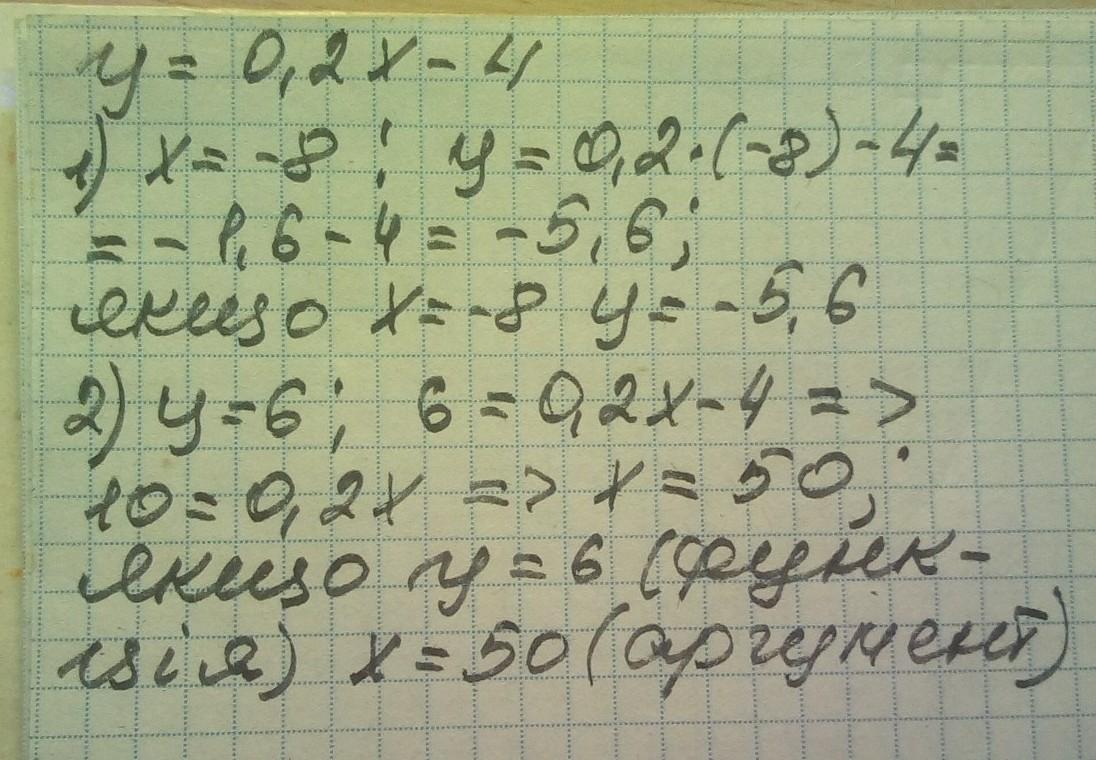 y = 0,2x - 4
1) x = -8 ; y = 0,2·(-8) - 4 =
= - 1,6 - 4 = -5,6;
якщо x = -8 y = -5,6
2) y = 6; 6 = 0,2x - 4 =>
10 = 0,2x => x = 50;
якщо y = 6 (функ-
ція) x = 50 (аргумент)